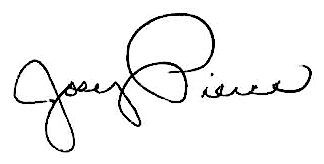 Josey Pierce